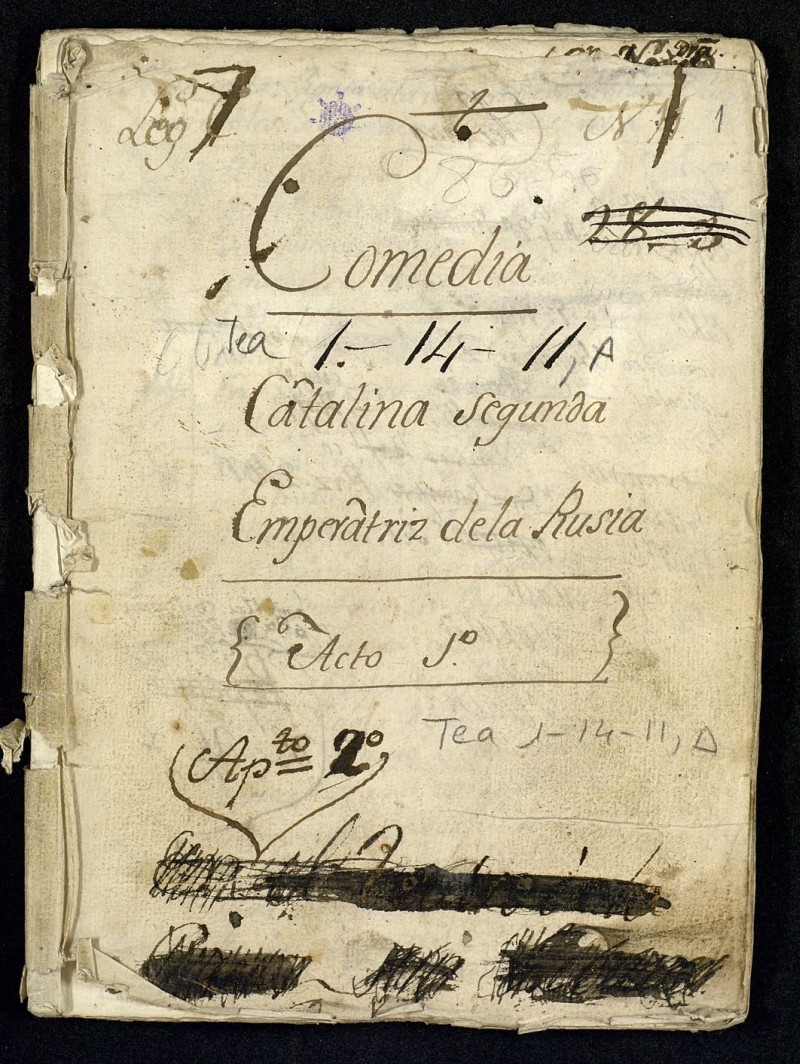 Leg 7 N 1 1
86
28-3
Comedia
Tea 1-14-11, A
Catalina segunda
Emperatriz dela Rusia
{ Acto 1.º }
Ap.to 2º
Tea 1-14-11, A